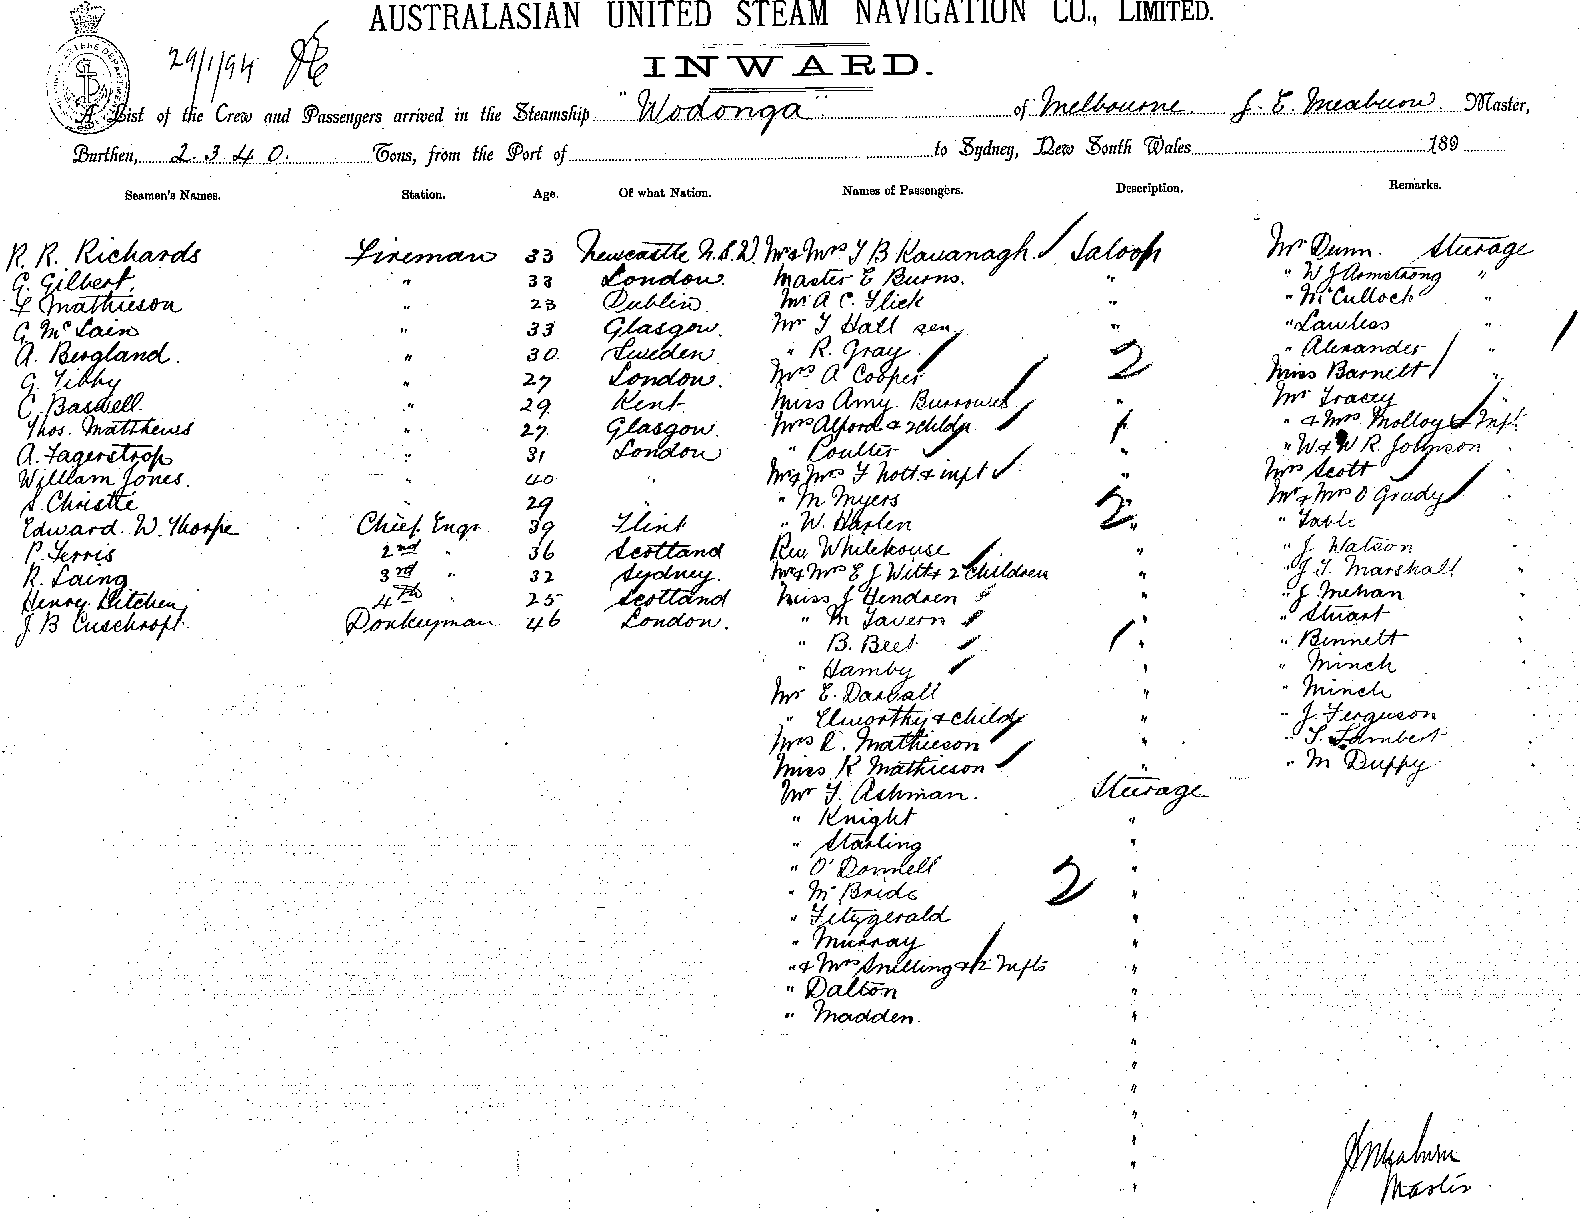 AUSTRALASIAN UNITED STEAM NAVIGATION CO., LIMITED.
29/1/94
INWARD.
A List of the Crew and Passengers arrived in the Steamship "Wodonga" of Melbourne J. E. Meaburn Master,
Burthen, 2.340. Tons, from the Port of to Sydney, New South Wales 189
Seamen's Names. Station. Age. Of what Nation. Names of Passengers. Description. Remarks.
R. R. Richards Fireman 33 Newcastle N.S.W Mr & Mrs T B Kavanagh Saloon Mr Dunn. Steerage
G. Gilbert. " 33 London. Master E Burns. " " W J Armstrong "
Mathieson " 23 Dublin Mr A C. Flick " " McCulloch "
G McLain " 33 Glasgow. Mr T Hall sen " " Lawless "
A. Bergland. " 30 Sweden " R. Gray 2 " Alexander "
G. Tibby " 27 London. Mrs A Cooper Miss Barnett
C. Baswell. " 29 Kent Miss Amy Burrowes " Mr Tracey "
Thos. Matthews " 27 Glasgow. Mrs Alford & 2 childn " " & Mrs Molloy & Inft.
A. Fagerstrop " 31 London " Coulter " " W & W R. Johnson
William Jones. " 40 " Mr & Mrs F Nott & inft " Mrs Scott
S. Christie " 29 " " M Myers 2 Mr & Mrs O Grady
Edward. W. Thorpe Chief Engr 39 Flint " W. Harlen " " Table
P. Ferris 2nd " 36 Scotland Rev Whitehouse " " J. Watson
R. Laing 3rd " 32 Sydney. Mr & Mrs E J Witt & 2 Children " " J. T. Marshall
Henry Kitchen 4th " 25 Scotland Miss J Hendren " " J. Mehan
J. B Donkeyman 46 London. " M Tavern " " Stuart
" B. Beet " " Bennett
" Hamby " " Minch
Mr E. Darvall " " Minch
" Elworthy & child " " J. Ferguson
Mrs R. Mathieson " " T. Lambert
Miss K Mathieson " " M Duffy
Mr T. Ashman. Steerage
" Knight "
" Starling "
" O'Donnell "
" McBride 2 "
" Fitzgerald "
" Murray "
" & Mrs Snelling & 2 Infts "
" Dalton "
" Madden. "
"
"
"
"
"
"
"
J E Meaburn
Master